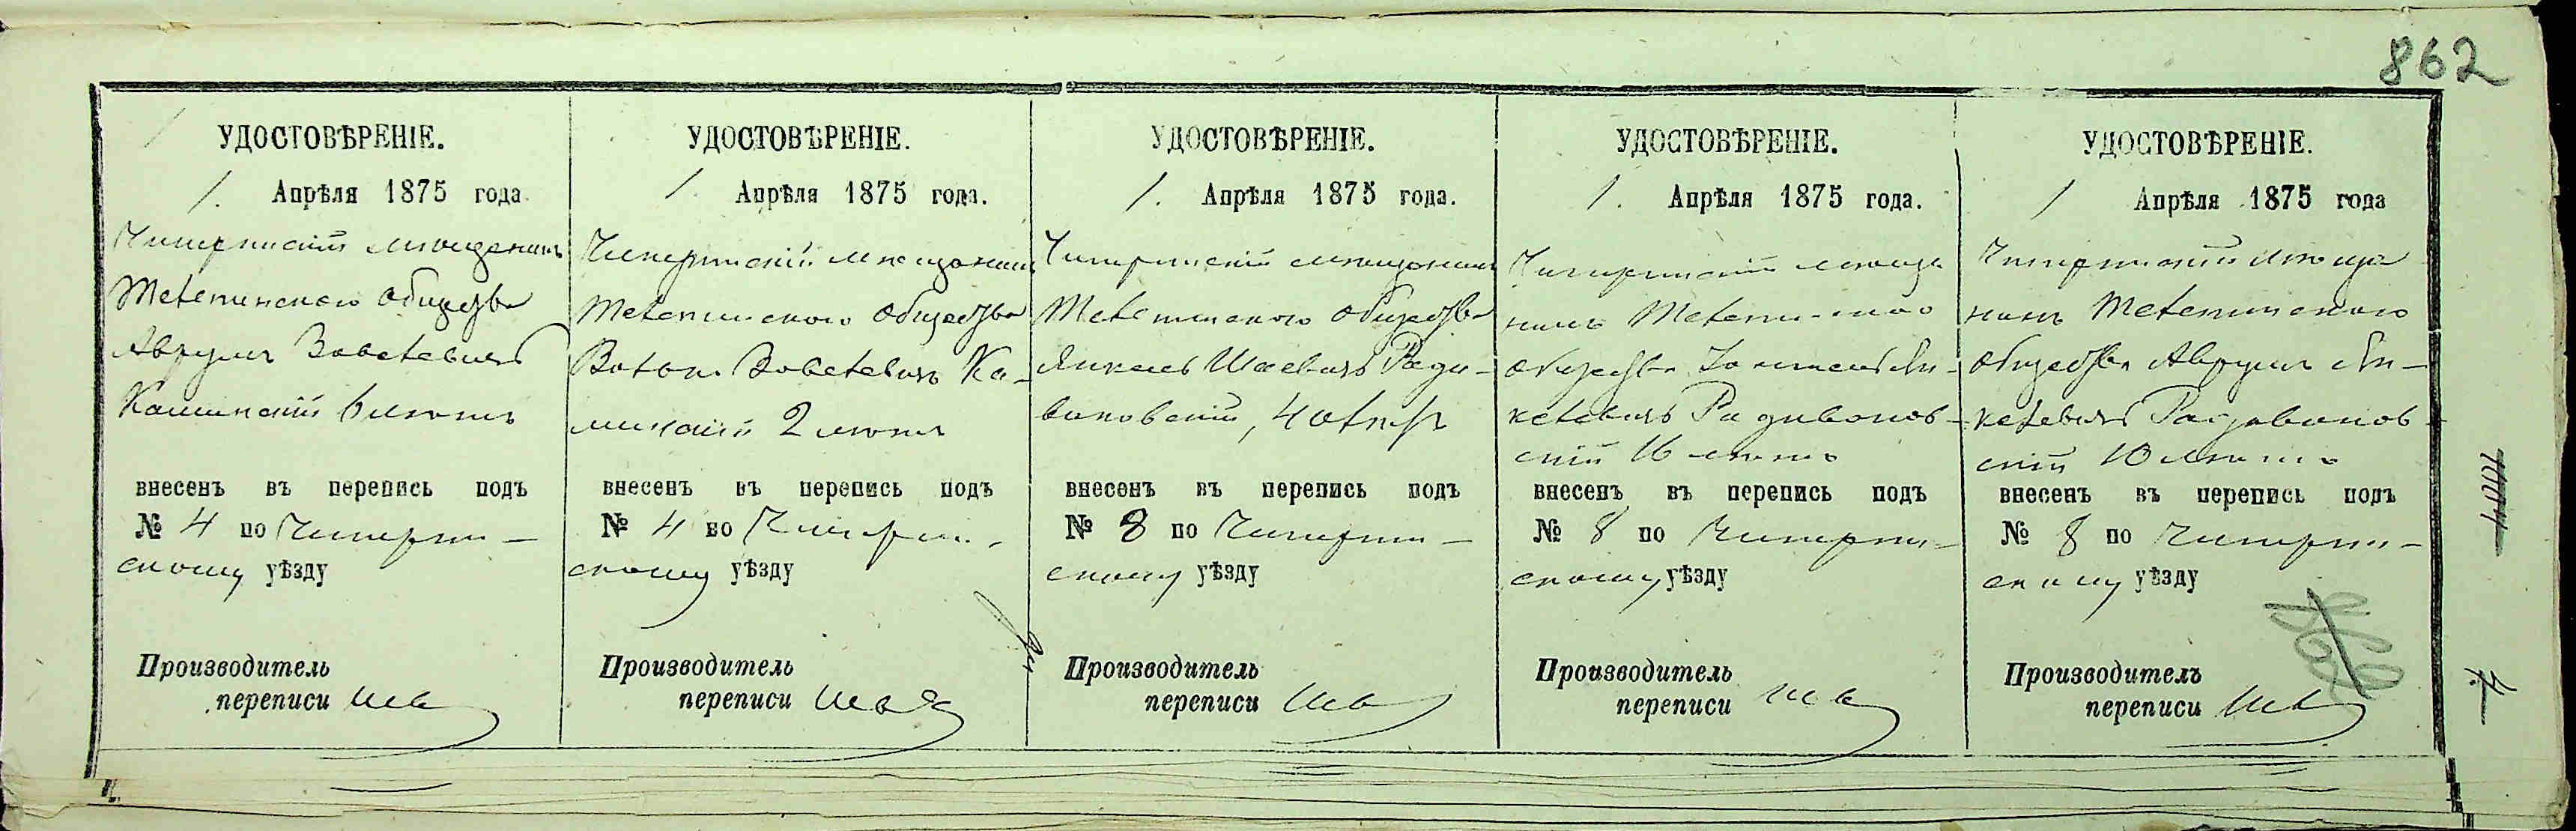 862
УДОСТОВѢРЕНІЕ.
1. Апрѣля 1875 года.
Чигиринскій мѣщанинъ
общества
Аврумъ
Каминскій 6 лѣтъ
внесенъ въ перепись подъ
№ 4 по Чигирин-
скому уѣзду
Производитель
переписи
УДОСТОВѢРЕНІЕ.
1 Апрѣля 1875 года.
Чигиринскій мѣщанинъ
общества
Ка-
минскій 2 лѣтъ
внесенъ въ перепись подъ
№ 4 по Чигирин-
скому уѣзду
Производитель
переписи
УДОСТОВѢРЕНІЕ.
1. Апрѣля 1875 года.
Чигиринскій мѣщанинъ
общества
Янкель Шаевичъ Ради-
вановскій, 40 лѣтъ
внесенъ въ перепись подъ
№ 8 по Чигирин-
скому уѣзду
Производитель
переписи
УДОСТОВѢРЕНІЕ.
1. Апрѣля 1875 года.
Чигиринскій мѣща
нинъ
общества Ян-
келевичъ Радивонов-
скій 16 лѣтъ
внесенъ въ перепись подъ
№ 8 по Чигирин-
скому уѣзду
Производитель
переписи
УДОСТОВѢРЕНІЕ.
1 Апрѣля 1875 года
Чигиринскій мѣща
нинъ
общества Аврумъ Ян-
келевичъ Радивонов-
скій 10 лѣтъ
внесенъ въ перепись подъ
№ 8 по Чигирин-
скому уѣзду
Производитель
переписи